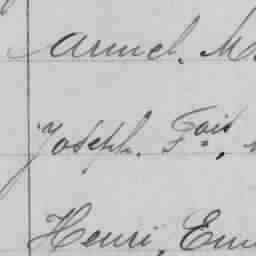 Armel. M
Joseph. Fois,
Henri, Em